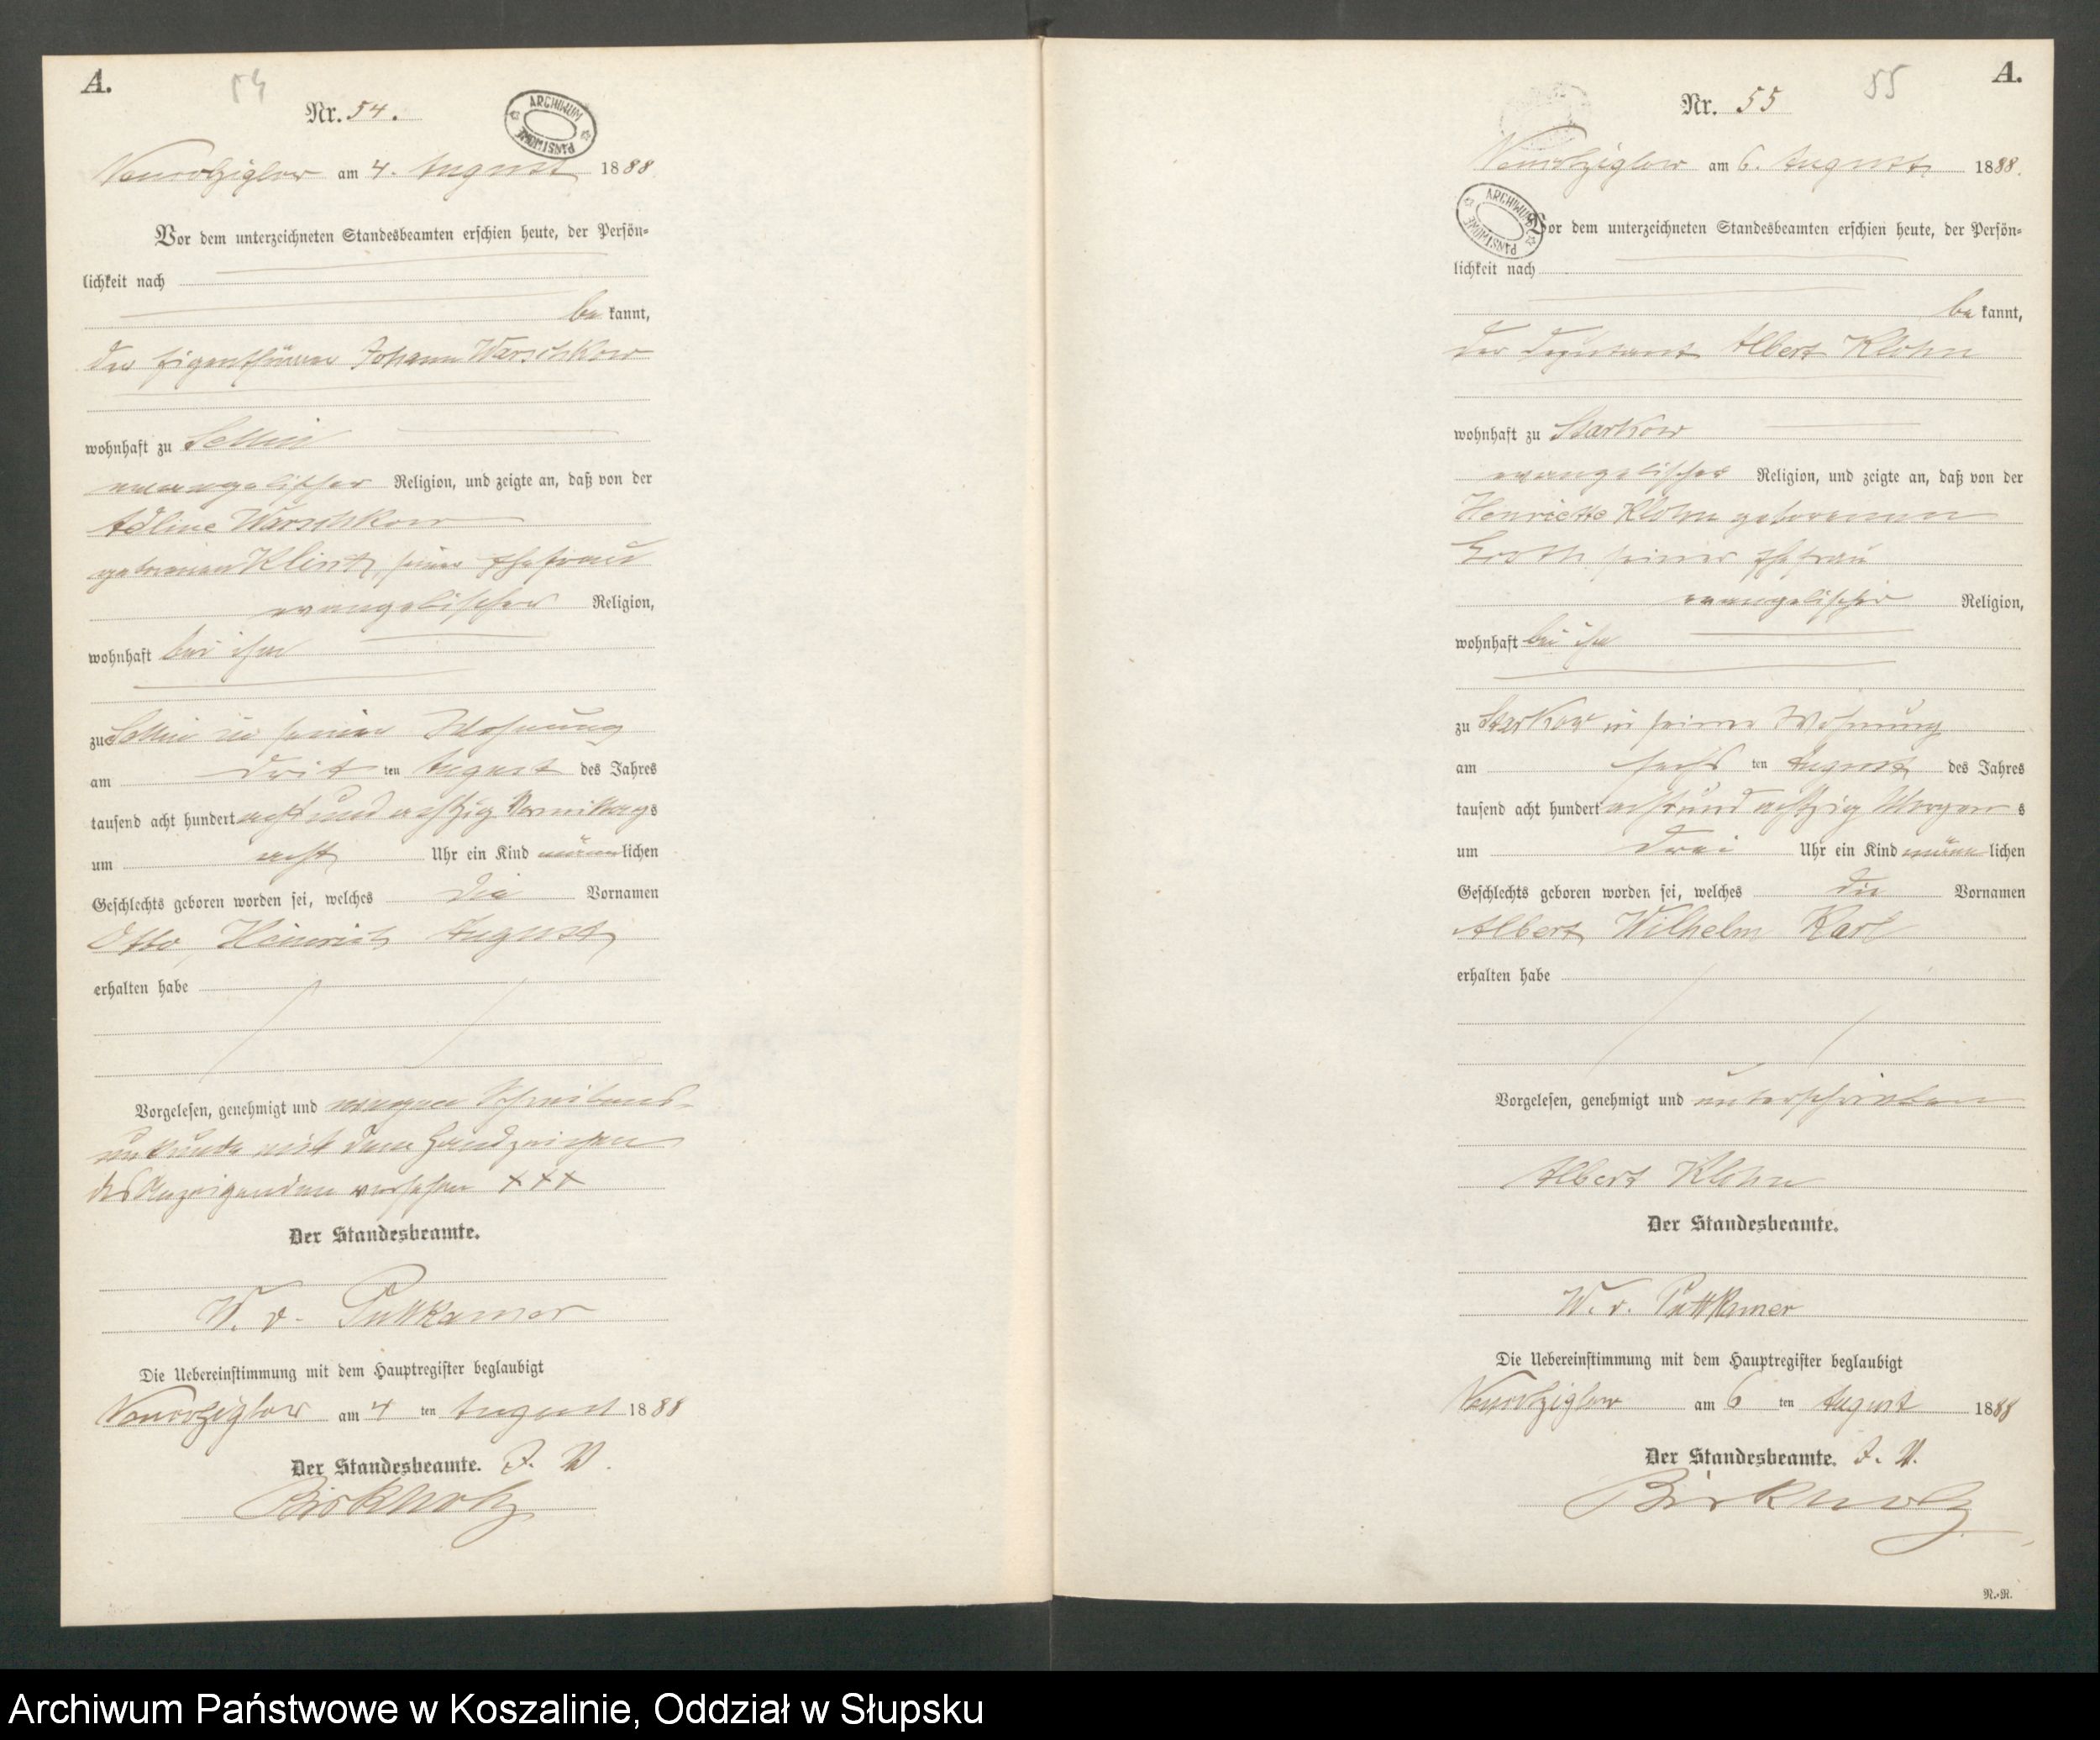 A.
54
Nr. 54.
ARCHIWUM PAŃSTWOWE
Neukolziglow am 4. August 1888
Vor dem unterzeichneten Standesbeamten erschien heute, der Persön-
lichkeit nach
be kannt,
der Eigenthümer Johann Warschkow
wohnhaft zu Sellin
evangelischer Religion, und zeigte an, daß von der
Adline Warschkow
geborenen Klintz, seiner Ehefrau
evangelischer Religion,
wohnhaft bei ihm
zu Sellin in seiner Wohnung
am drit ten August des Jahres
tausend acht hundert acht und achtzig Vormittags
um acht Uhr ein Kind männlichen
Geschlechts geboren worden sei, welches die Vornamen
Otto, Heinrich August
erhalten habe
Vorgelesen, genehmigt und wegen Schreibens-
unkunde mit dem Handzeichen
des Anzeigenden versehen XXX
Der Standesbeamte.
W. v. Puttkamer
Die Uebereinstimmung mit dem Hauptregister beglaubigt
Neukolziglow am 4 ten August 1888
Der Standesbeamte. J. V.
Birkholz
A.
55
Nr. 55
Neukolziglow am 6. August 1888.
ARCHIWUM PAŃSTWOWE
Vor dem unterzeichneten Standesbeamten erschien heute, der Persön-
lichkeit nach
be kannt,
der Deputant Albert Klohn
wohnhaft zu Starkow
evangelischer Religion, und zeigte an, daß von der
Henriette Klohn geborenen
Groth seiner Ehefrau
evangelischer Religion,
wohnhaft bei ihm
zu Starkow in seiner Wohnung
am sechs ten August des Jahres
tausend acht hundert acht und achtzig Morgens
um drei Uhr ein Kind männlichen
Geschlechts geboren worden sei, welches die Vornamen
Albert Wilhelm Karl
erhalten habe
Vorgelesen, genehmigt und unterschrieben
Albert Klohn
Der Standesbeamte.
W. v. Puttkamer
Die Uebereinstimmung mit dem Hauptregister beglaubigt
Neukolziglow am 6 ten August 1888
Der Standesbeamte. J. V.
Birkholz
R.-R.
Archiwum Państwowe w Koszalinie, Oddział w Słupsku